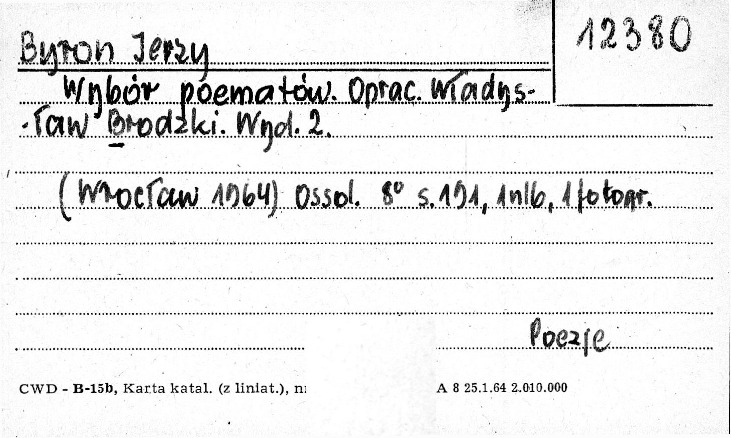 12380
Byron Jerzy
Wybór poematów. Oprac. Władys-
-ław Brodzki. Wyd. 2.
(Wrocław 1964) Ossol. 8° s. 191, 1 nlb, 1 fotogr.
Poezje
CWD - B-15b, Karta katal. (z liniat.), n
A 8 25.1.64 2.010.000